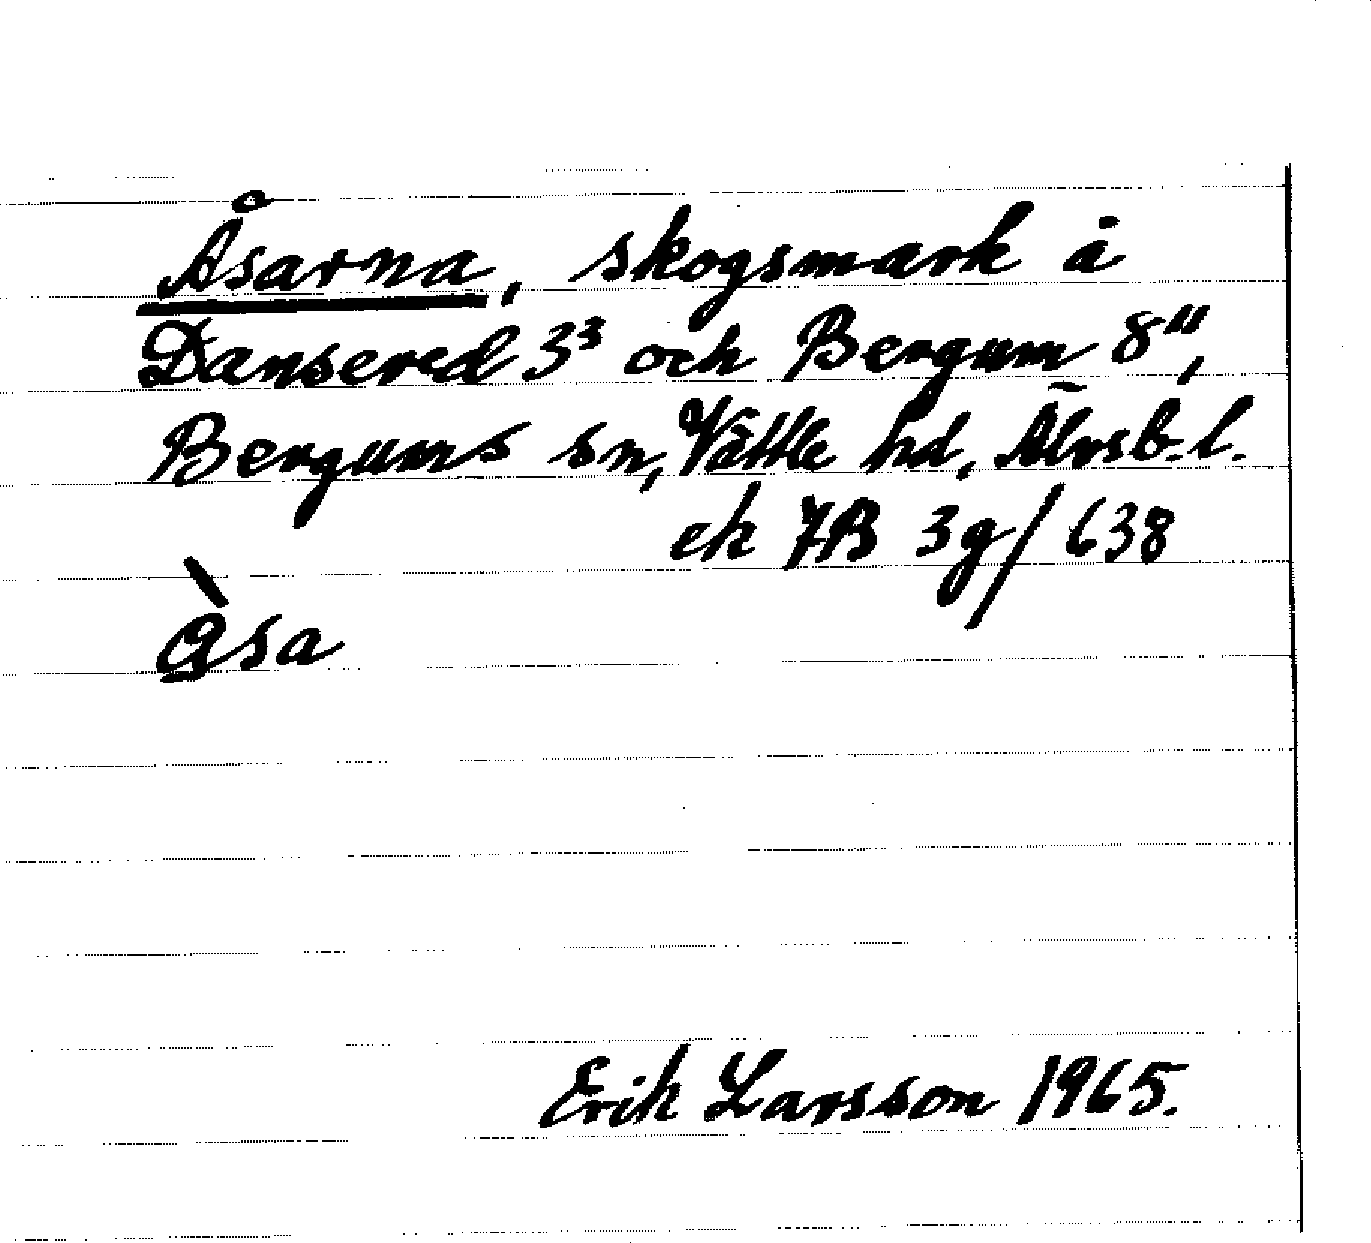 Åsarna, skogsmark å
Dansered 3³ och Bergum 8¹¹,
Bergums sn, Vättle hd, Älvsb. l.
ek 7B 3g/638
ạ̀sa
Erik Larsson 1965.